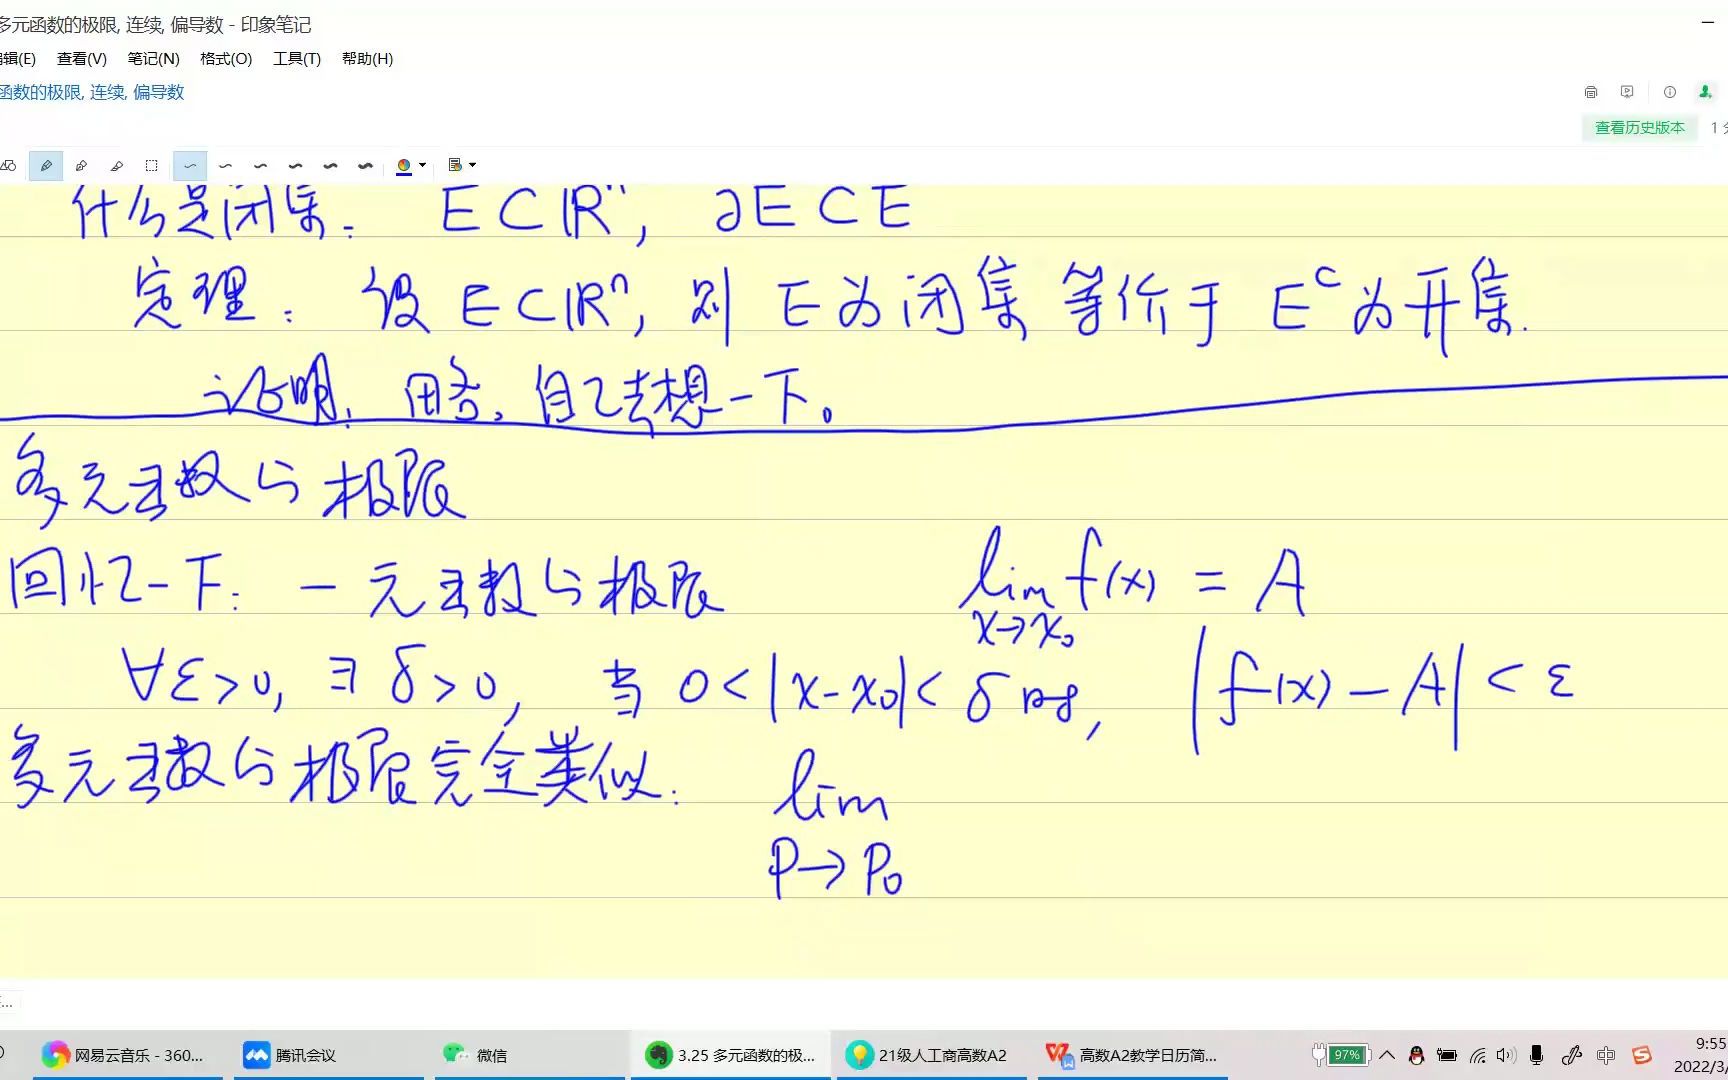 多元函数的极限, 连续, 偏导数 - 印象笔记
编辑(E) 查看(V) 笔记(N) 格式(O) 工具(T) 帮助(H)
函数的极限, 连续, 偏导数
查看历史版本 1
什么是闭集: E⊂ℝⁿ, ∂E⊂E
定理: 设 E⊂ℝⁿ, 则 E为闭集 等价于 Eᶜ为开集.
证明: 略, 自己去想一下。
多元函数的极限
回忆一下: 一元函数的极限 lim f(x) = A
x→x₀
∀ε>0, ∃δ>0, 当 0<|x-x₀|<δ时, |f(x)-A|<ε
多元函数的极限完全类似: lim
P→P₀
网易云音乐 - 360... 腾讯会议 微信 3.25 多元函数的极... 21级人工商高数A2 高数A2教学日历简... 97% 中 9:55
2022/3/